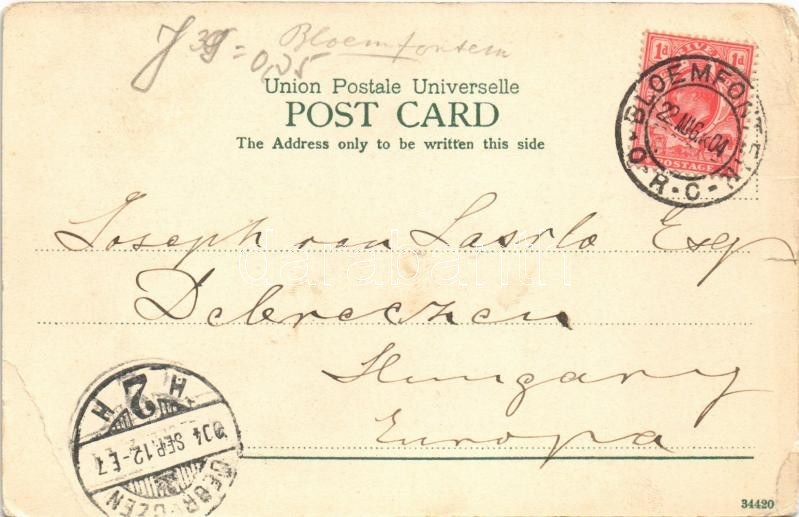 Bloemfontein
= 0,25
Union Postale Universelle
POST CARD
The Address only to be written this side
1d 1d
POSTAGE
BLOEMFONTEIN
22 AUG 04
O·R·C
Joseph von Laszlo Esq
Debreczen
Hungary
Europa
H 2 H
904 SEP.12-E.7
DEBRECZEN
34420